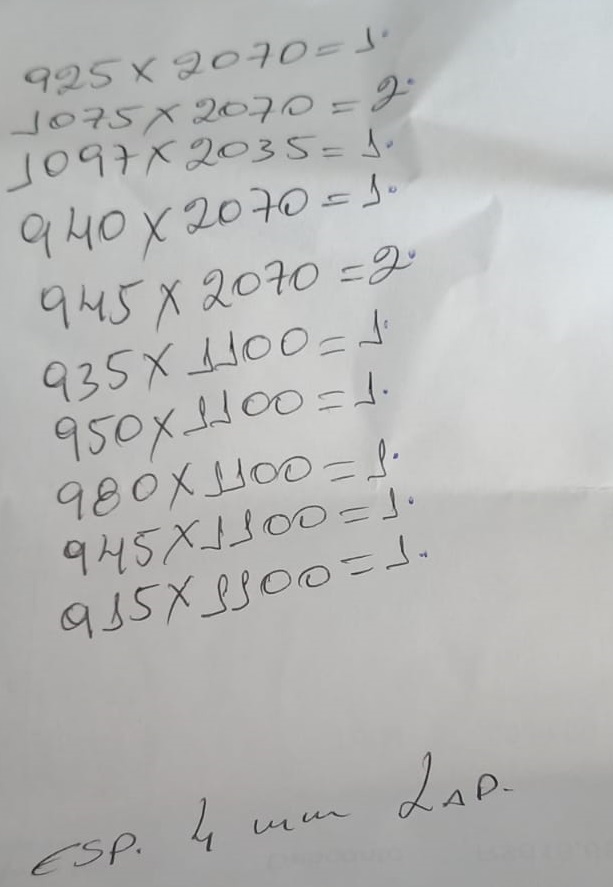 925 x 2070 = 1.
1075 x 2070 = 2.
1097 x 2035 = 1.
940 x 2070 = 1.
945 x 2070 = 2.
935 x 1100 = 1.
950 x 1100 = 1.
980 x 1100 = 1.
945 x 1100 = 1.
915 x 1100 = 1.
ESP. 4 mm LAP.